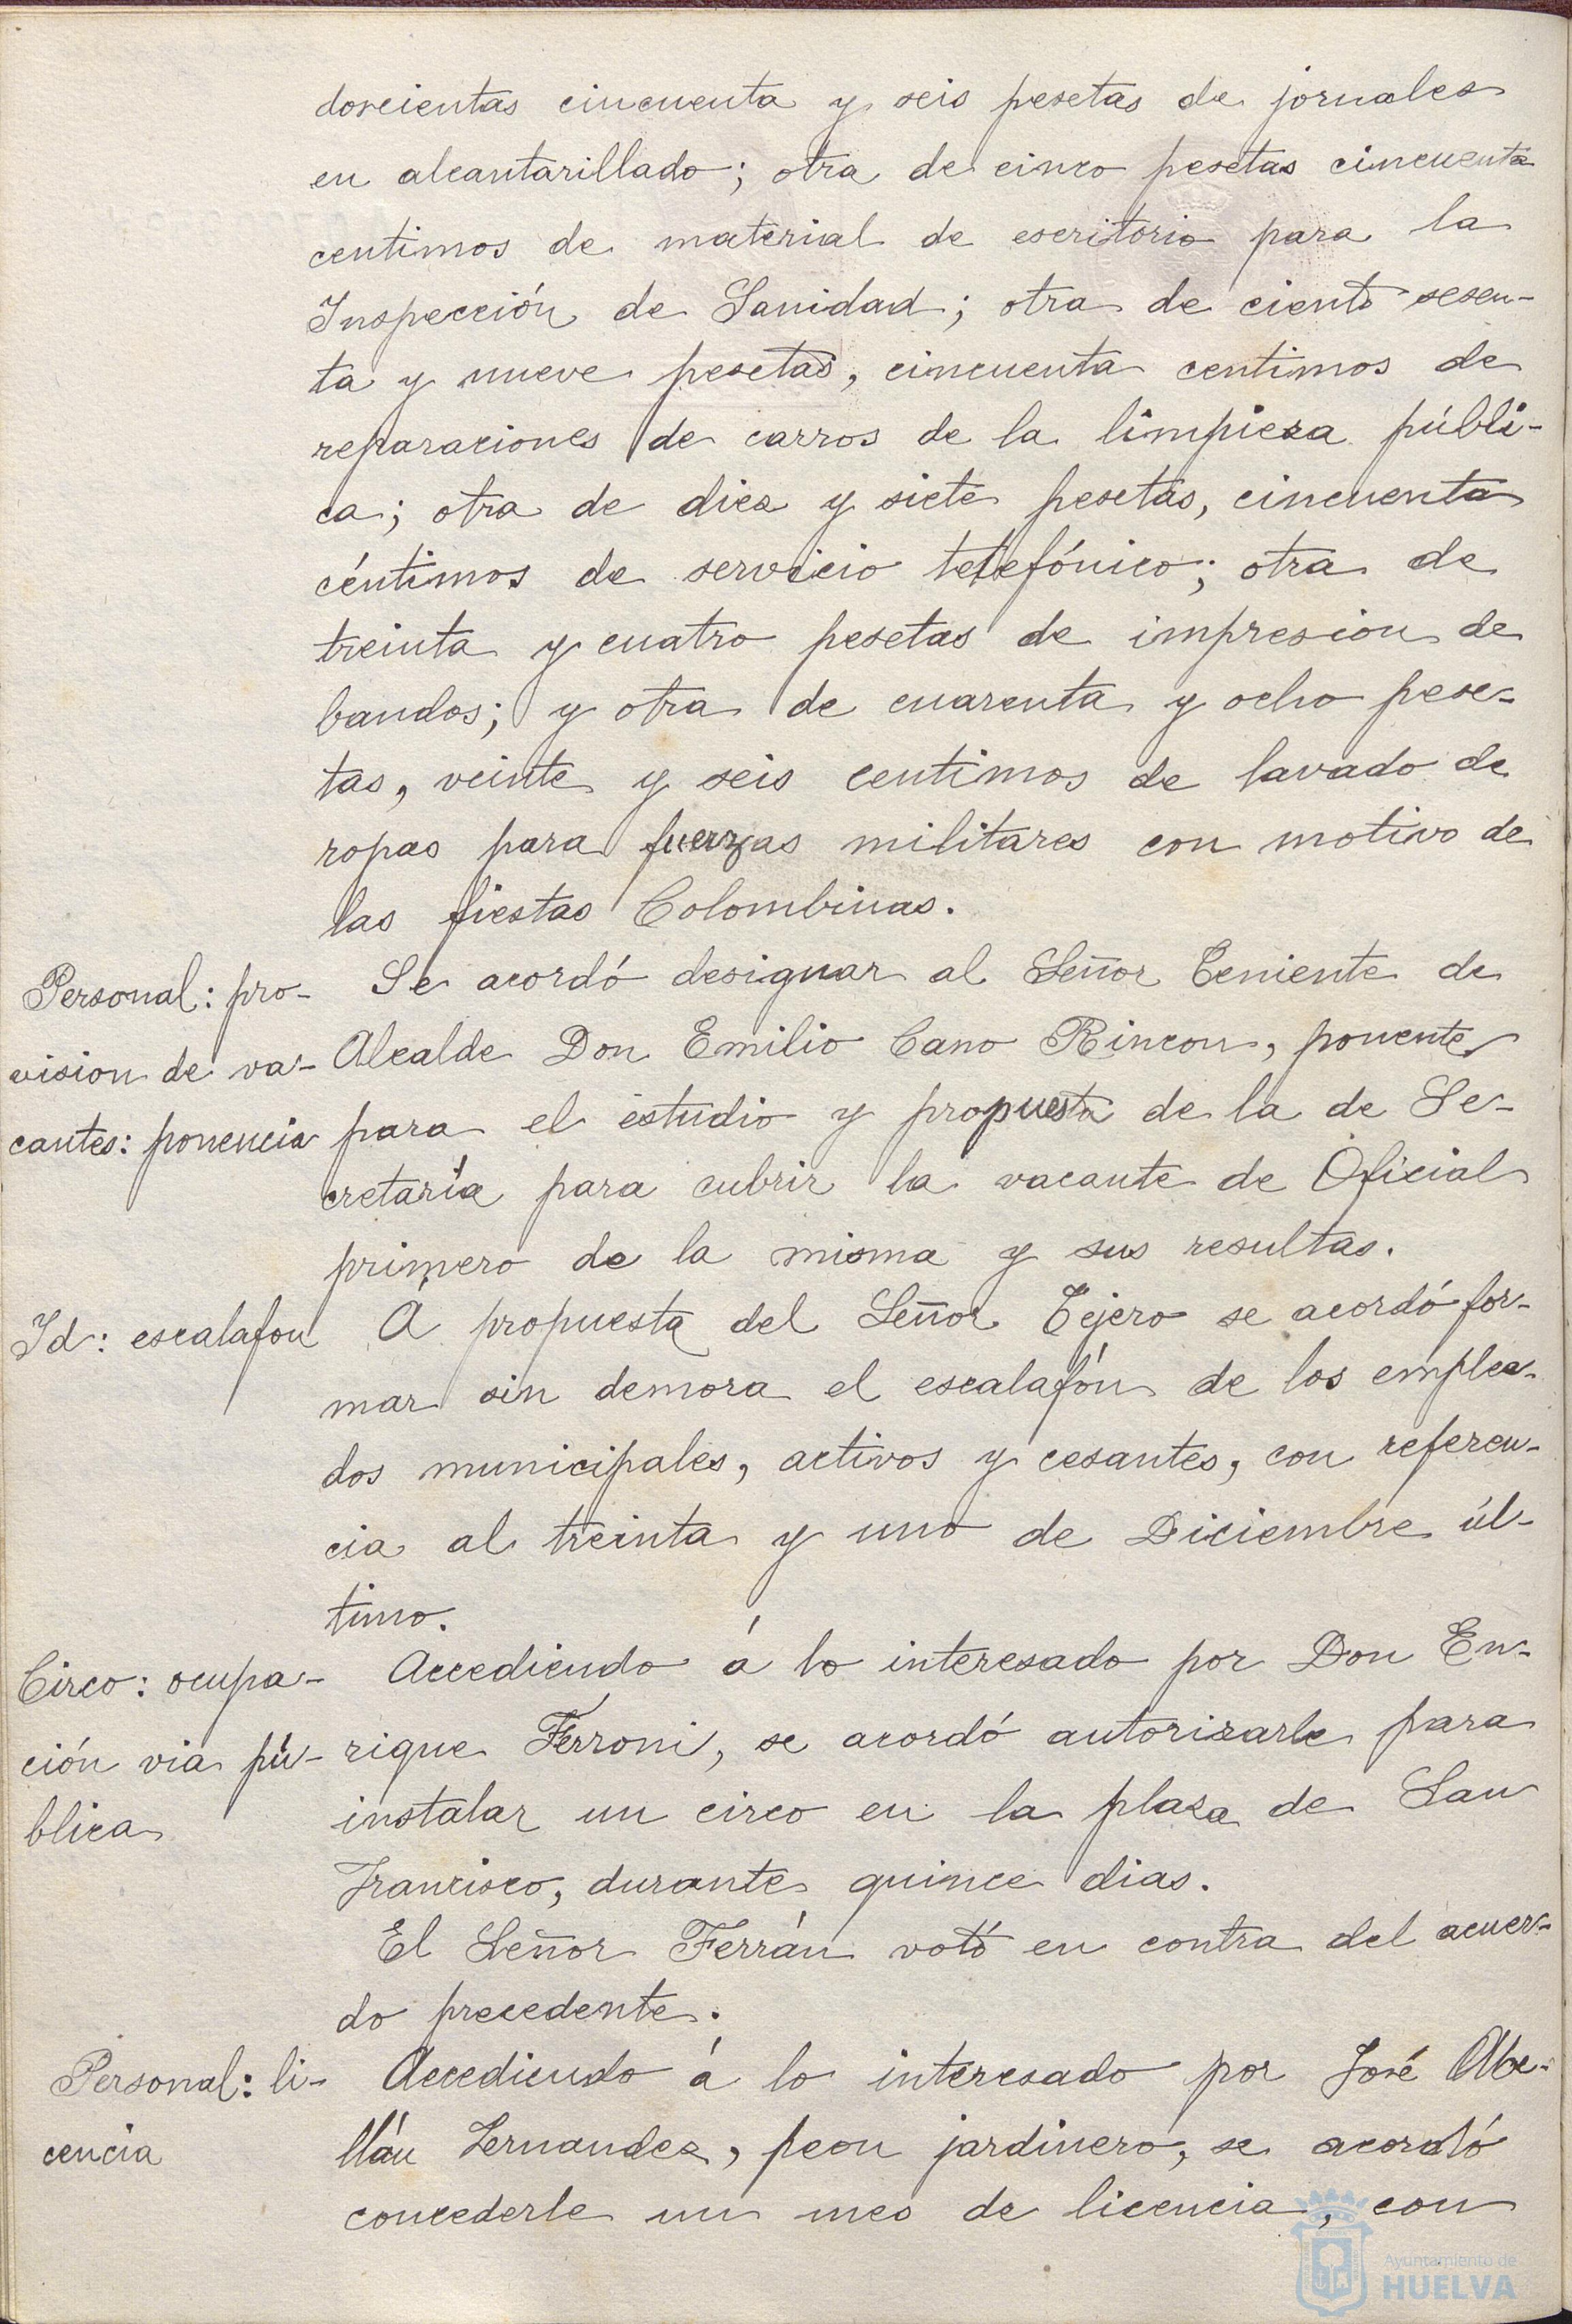 doscientas cincuenta y seis pesetas de jornales
en alcantarillado; otra de cinco pesetas cincuenta
centimos de material de escritorio para la
Inspección de Sanidad; otra de ciento sesen-
ta y nueve pesetas, cincuenta centimos de
reparaciones de carros de la limpieza públi-
ca; otra de diez y siete pesetas, cincuenta
céntimos de servicio telefónico; otra de
treinta y cuatro pesetas de impresion de
bandos; y otra de cuarenta y ocho pese-
tas, veinte y seis centimos de lavado de
ropas para fuerzas militares con motivo de
las fiestas Colombinas.
Personal: pro-
vision de va-
cantes: ponencia
Se acordó designar al Señor Teniente de
Alcalde Don Emilio Cano Rincon, ponente
para el estudio y propuesta de la de Se-
cretaría para cubrir la vacante de Oficial
primero de la misma y sus resultas.
Id: escalafon
Á propuesta del Señor Tejero se acordó for-
mar sin demora el escalafón de los emplea-
dos municipales, activos y cesantes, con referen-
cia al treinta y uno de Diciembre úl-
timo.
Circo: ocupa-
ción via pú-
blica
Accediendo á lo interesado por Don En-
rique Ferroni, se acordó autorizarle para
instalar un circo en la plaza de San
Francisco, durante quince dias.
El Señor Ferrán votó en contra del acuer-
do precedente.
Personal: li-
cencia
Accediendo á lo interesado por José Abe-
llán Fernandez, peon jardinero, se acordó
concederle un mes de licencia, con
Ayuntamiento de
HUELVA